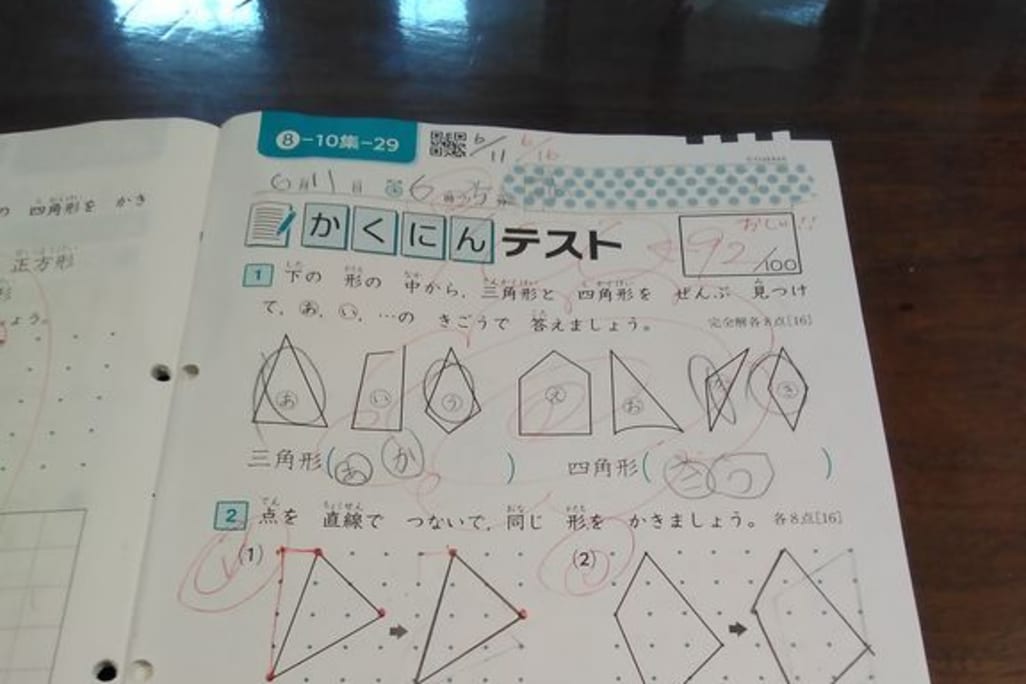 の 四角形を かき
正方形
形
ょう。
8-10集-29
6/11 6/16
6月11日 6時
かくにんテスト
おしい!!
92/100
1 下の 形の 中から、三角形と 四角形を ぜんぶ 見つけ
て、あ、い、…の きごうで 答えましょう。 完全解各8点[16]
あ い う え お か き
三角形(あ か) 四角形(き う)
2 点を 直線で つないで、同じ 形を かきましょう。 各8点[16]
(1) (2)